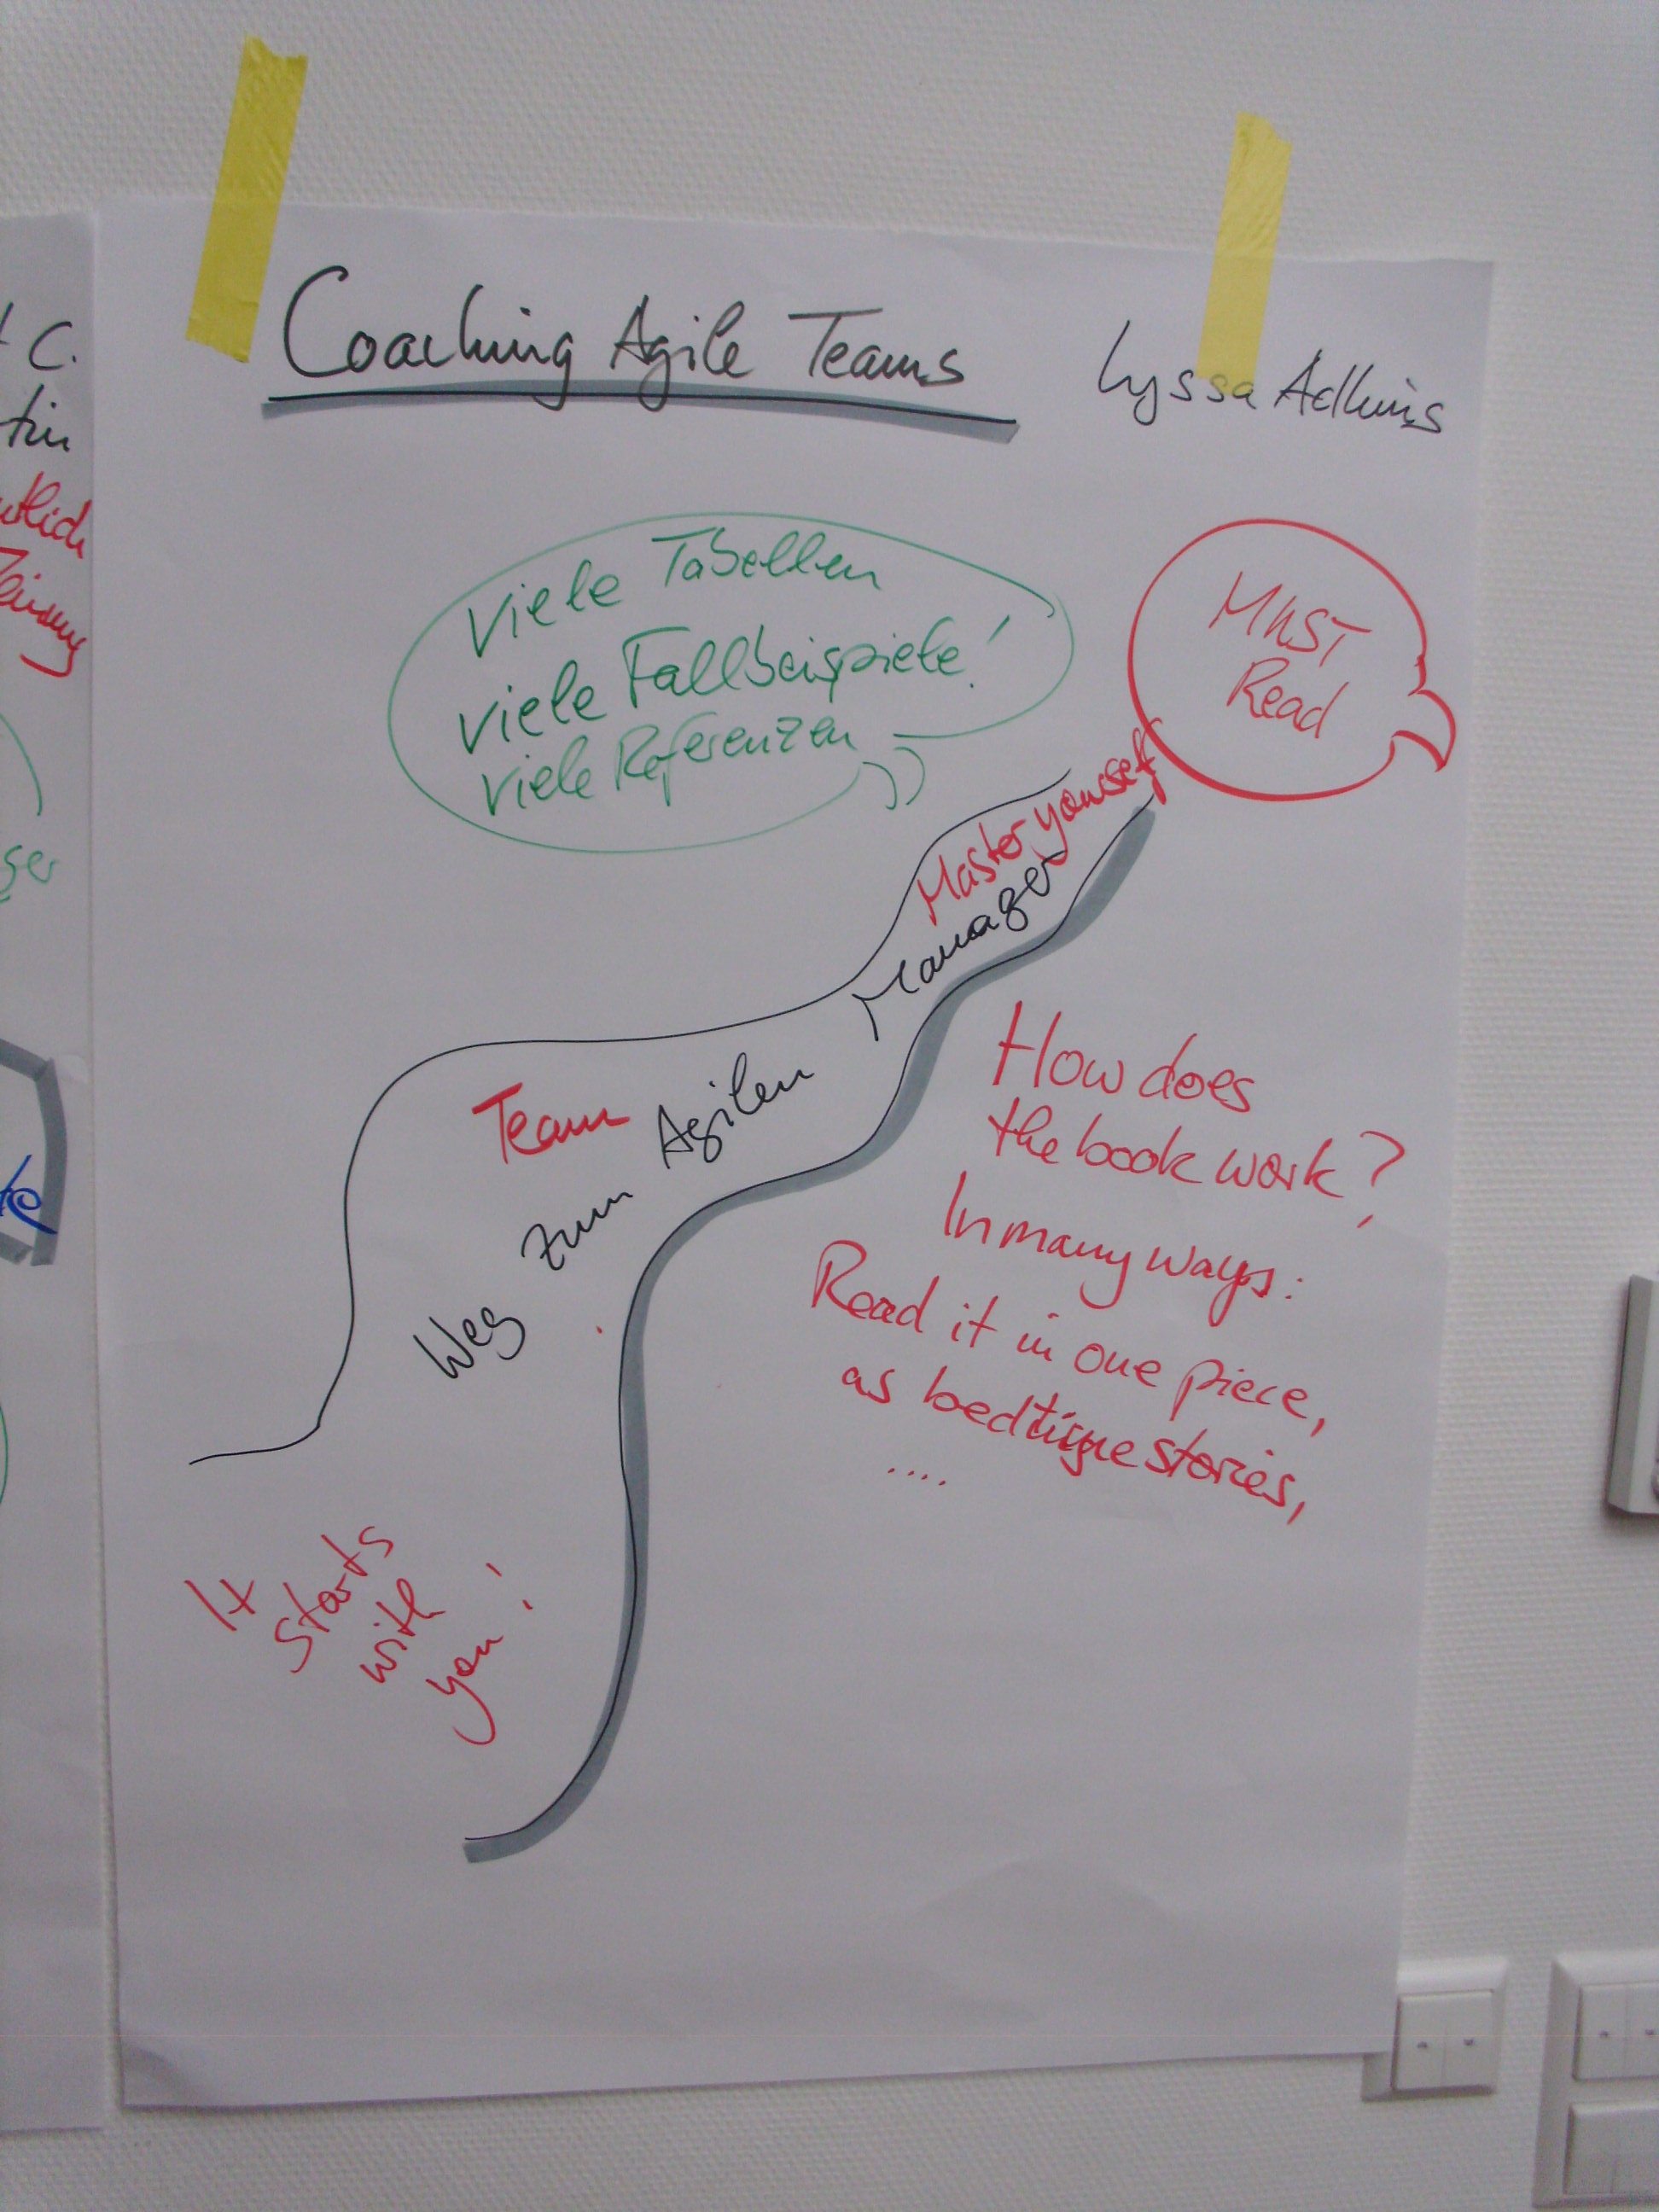 Coaching Agile Teams
Lyssa Adkins
viele Tabellen
viele Fallbeispiele!
viele Referenzen
MUST
Read
Master yourself
Weg zum Agilen Manager
Team
How does
the book work?
In many ways:
Read it in one piece,
as bedtime stories,
....
It
starts
with
you!
C.